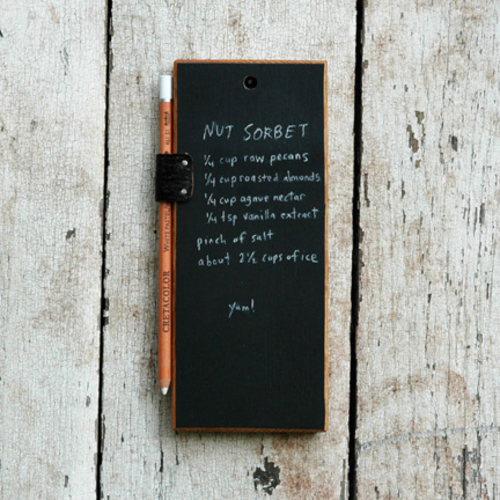 NUT SORBET
1/4 cup raw pecans
1/4 cup roasted almonds
1/4 cup agave nectar
1/4 tsp vanilla extract
pinch of salt
about 2 1/2 cups of ice
yum!
CRETACOLOR